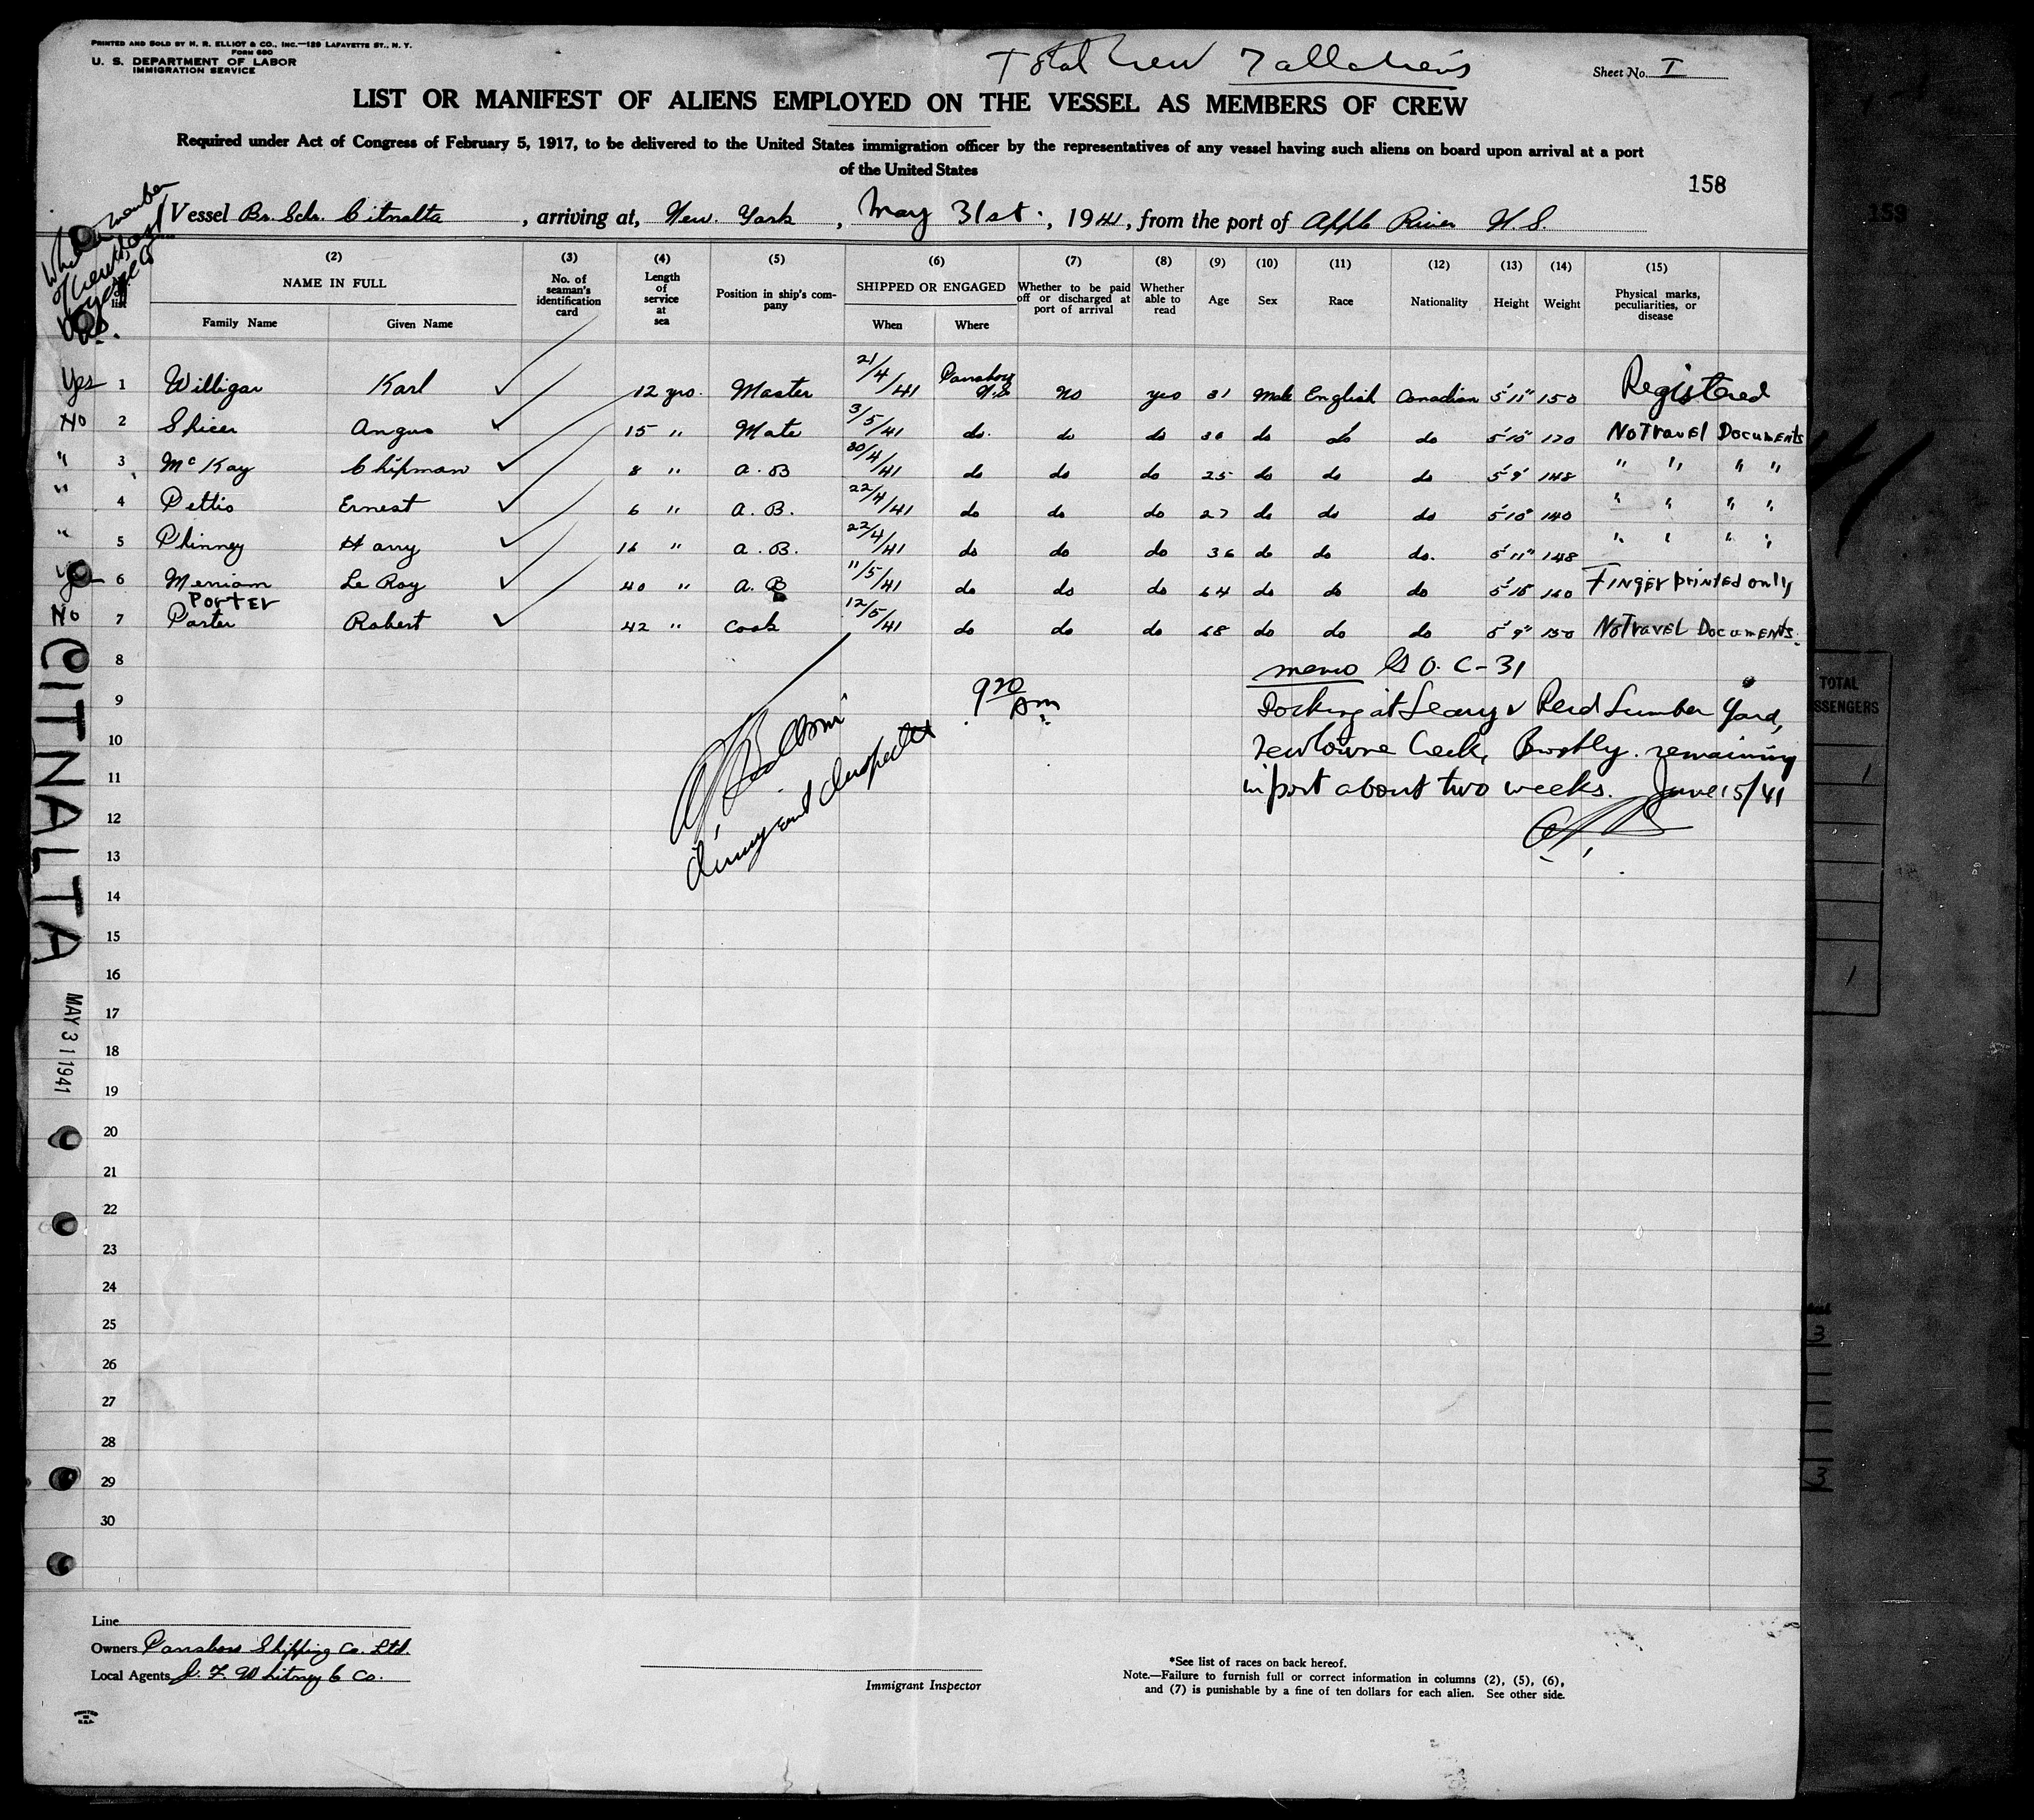 PRINTED AND SOLD BY H. R. ELLIOT & CO., INC.—129 LAFAYETTE ST., N. Y.
FORM 680
U. S. DEPARTMENT OF LABOR
IMMIGRATION SERVICE
Total Crew 7 all aliens
Sheet No. I
LIST OR MANIFEST OF ALIENS EMPLOYED ON THE VESSEL AS MEMBERS OF CREW
Required under Act of Congress of February 5, 1917, to be delivered to the United States immigration officer by the representatives of any vessel having such aliens on board upon arrival at a port
of the United States
158
Vessel Br. Schr. Citnalta, arriving at, New York, May 31st., 1941, from the port of Apple River N.S.
(2) (3) (4) (5) (6) (7) (8) (9) (10) (11) (12) (13) (14) (15)
NAME IN FULL
Family Name Given Name
No. of seaman's identification card
Length of service at sea
Position in ship's company
SHIPPED OR ENGAGED
When Where
Whether to be paid off or discharged at port of arrival
Whether able to read
Age Sex Race Nationality Height Weight
Physical marks, peculiarities, or disease
Yes 1 Willigar Karl 12 yrs. Master 21/4/41 Parrsboro N.S. No yes 31 Male English Canadian 5'11" 150 Registered
No 2 Spicer Angus 15 " Mate 3/5/41 do. do do 30 do do do 5'10" 170 No Travel Documents
" 3 McKay Chipman 8 " A.B 30/4/41 do do do 25 do do do 5'9" 148 " " " "
" 4 Pettis Ernest 6 " A.B. 22/4/41 do do do 27 do do do 5'10" 140 " " " "
" 5 Phinney Harry 16 " A.B. 22/4/41 do do do 36 do do do. 5'11" 148 " " " "
Yes 6 Merriam Le Roy 40 " A.B 11/5/41 do do do 64 do do do 5'10" 160 Finger printed only
Porter
No 7 Porter Robert 42 " Cook 12/5/41 do do do 68 do do do 5'9" 150 No Travel Documents.
8
9
10
11
12
13
14
15
16
17
18
19
20
21
22
23
24
25
26
27
28
29
30
memo G.O. C-31
Docking at Leary & Reid Lumber Yard,
Newtowne Creek, Brooklyn. remaining
in port about two weeks. June 15/41
9 20 AM
Immigrant Inspector
CITNALTA
MAY 31 1941
Line
Owners Parrsboro Shipping Co. Ltd.
Local Agents J. F. Whitney & Co.
Immigrant Inspector
*See list of races on back hereof.
Note.—Failure to furnish full or correct information in columns (2), (5), (6),
and (7) is punishable by a fine of ten dollars for each alien. See other side.
PRINTED IN U.S.A.
159
TOTAL
1
1
3
3